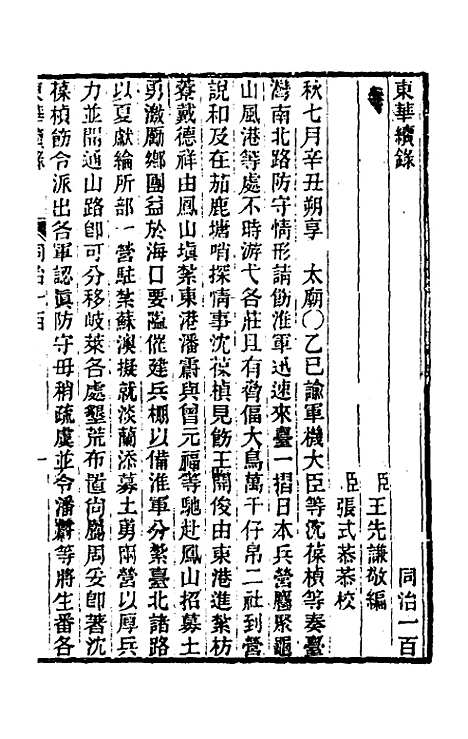 東華續錄
同治一百
臣王先謙敬編
臣張式恭恭校
秋七月辛丑朔享　太廟○乙巳諭軍機大臣等沈葆楨等奏臺
灣南北路防守情形請飭淮軍迅速來臺一摺日本兵營麕聚龜
山風港等處不時游弋各莊且有脅偪大鳥萬千仔帛二社到營
說和及在茄鹿塘哨探情事沈葆楨見飭王開俊由東港進紮枋
藔戴德祥由鳳山塡紮東港潘霨與曾元福等馳赴鳳山招募土
勇激厲鄉團益於海口要隘催建兵棚以備淮軍分紮臺北諸路
以夏獻綸所部一營駐紮蘇澳擬就淡蘭添募土勇兩營以厚兵
力並開通山路卽可分移岐萊各處墾荒布置尙屬周妥卽著沈
葆楨飭令派出各軍認眞防守毋稍疏虞並令潘霨等將生番各
東華續錄
同治一百
一